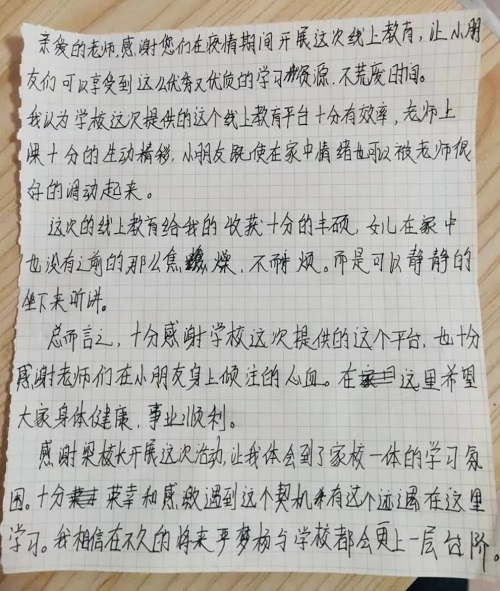 亲爱的老师,感谢您们在疫情期间开展这次线上教育,让小朋
友们可以享受到这么优秀又优质的学习资源,不荒废时间。
我认为学校这次提供的这个线上教育平台十分有效率,老师上
课十分的生动精彩,小朋友既使在家中情绪也可以被老师很
好的调动起来。
这次的线上教育给我的收获十分的丰硕,女儿在家中
也没有之前的那么焦燥,不耐烦。而是可以静静的
坐下来听讲。
总而言之,十分感谢学校这次提供的这个平台,也十分
感谢老师们在小朋友身上倾注的心血。在这里希望
大家身体健康,事业顺利。
感谢梁校长开展这次活动,让我体会到了家校一体的学习氛
围。十分荣幸和感激遇到这个契机有这个迹遇在这里
学习。我相信在不久的将来严梦杨与学校都会更上一层台阶。